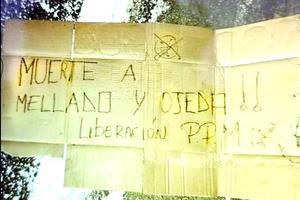 MUERTE A
MELLADO Y OJEDA!!
LIBERACIÓN PPM